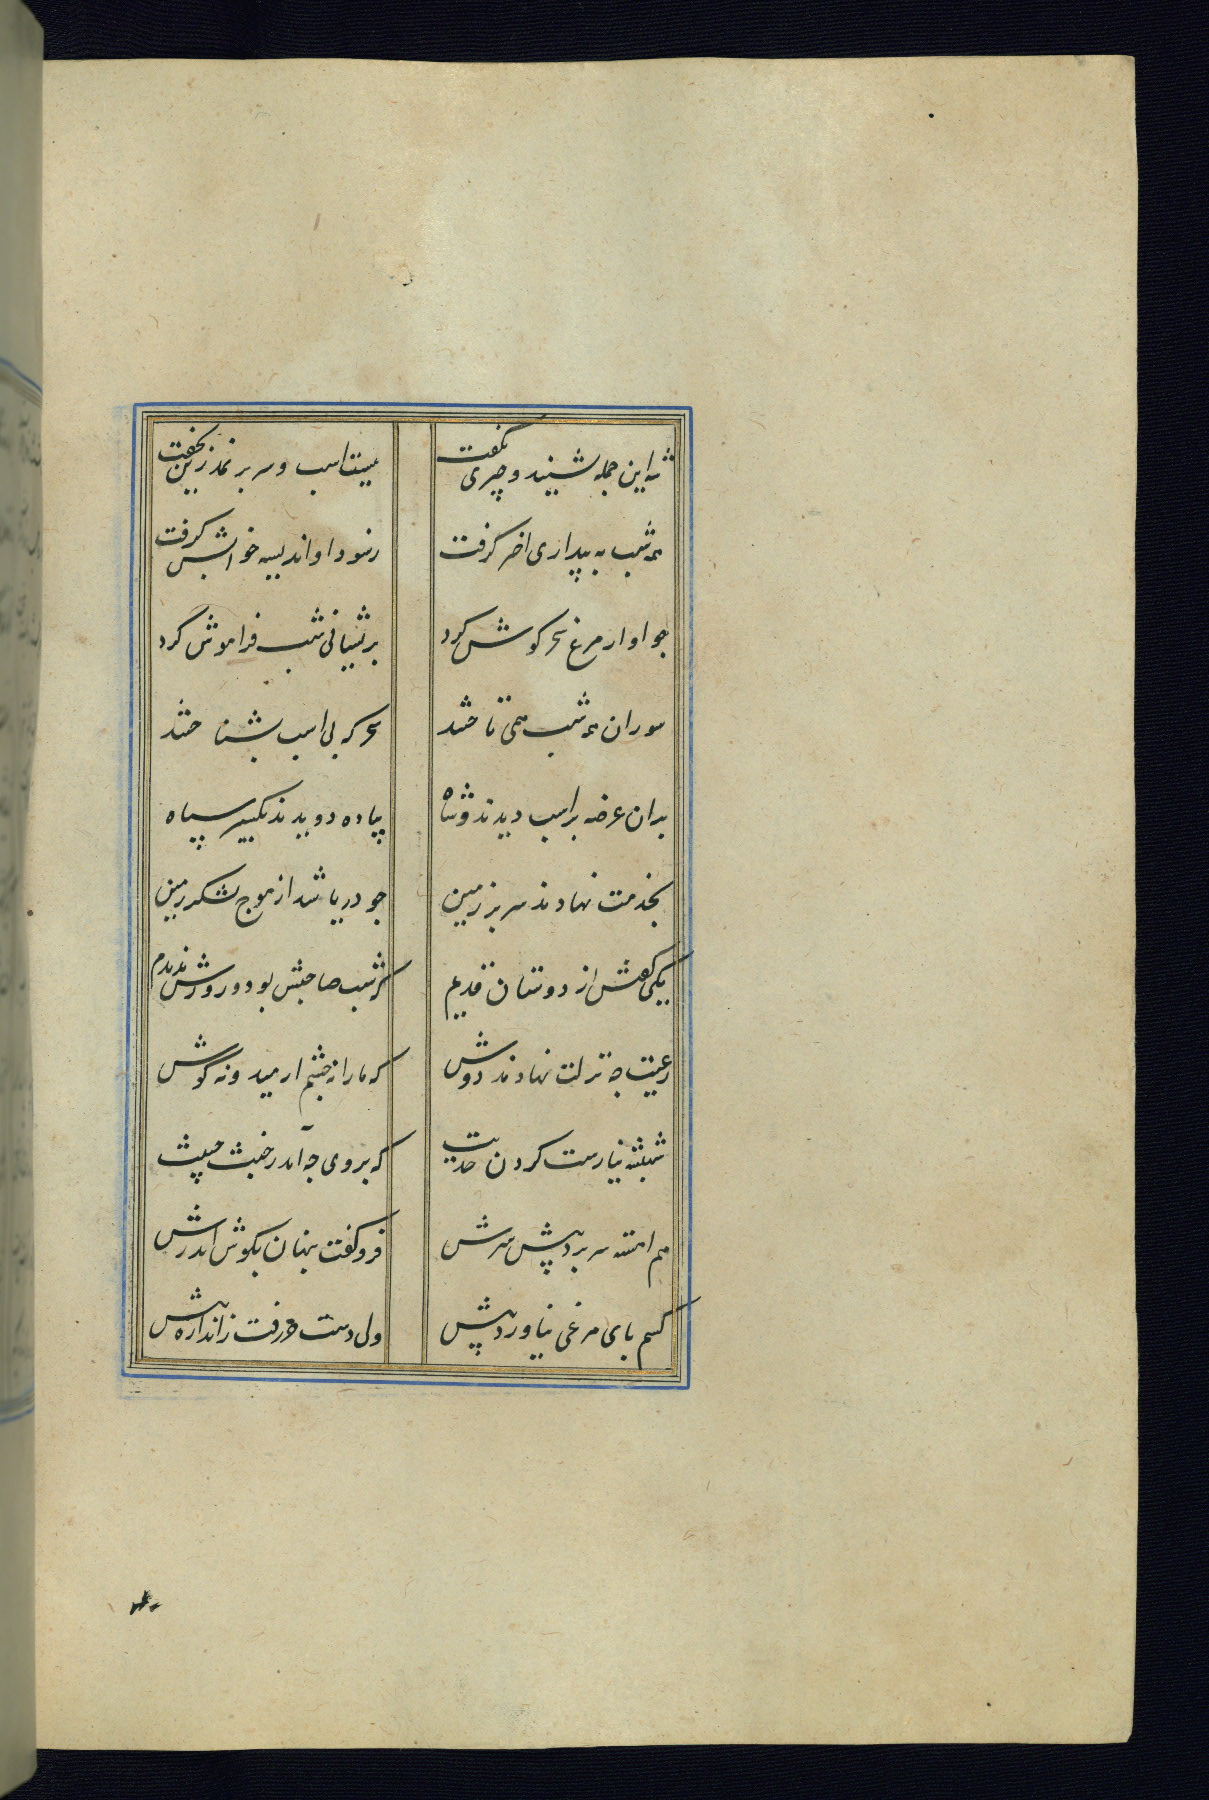 شه این جمله شنید و چیزی نگفت ببست اسب و سر بر نمد زین بخفت
همه شب به بیداری اختر گرفت ز سودا و اندیشه خوابش گرفت
چو اواز مرغ سحر گوش کرد پریشانی شب فراموش کرد
سوران همه شب همی تاختند سحرگه پی اسب بشناختند
بدان عرصه بر اسب دیدند و شاه پیاده دویدند یکسر سپاه
بخدمت نهادند سر بر زمین چو دریا شد از موج لشکر زمین
یکی گفتش از دوستان قدیم که شب حاجبش بود و روزش ندیم
رعیت چه نزلت نهادند دوش که ما را نه چشم ارمید و نه گوش
شهنشه نیارست کردن حدیث که بروی چه آمد ز خبث خبیث
هم اهسته سر برد پیش سرش فرو گفت پنهان بگوش اندرش
کسم پای مرغی نیاورد پیش ولی دست خر رفت ز اندازه بیش